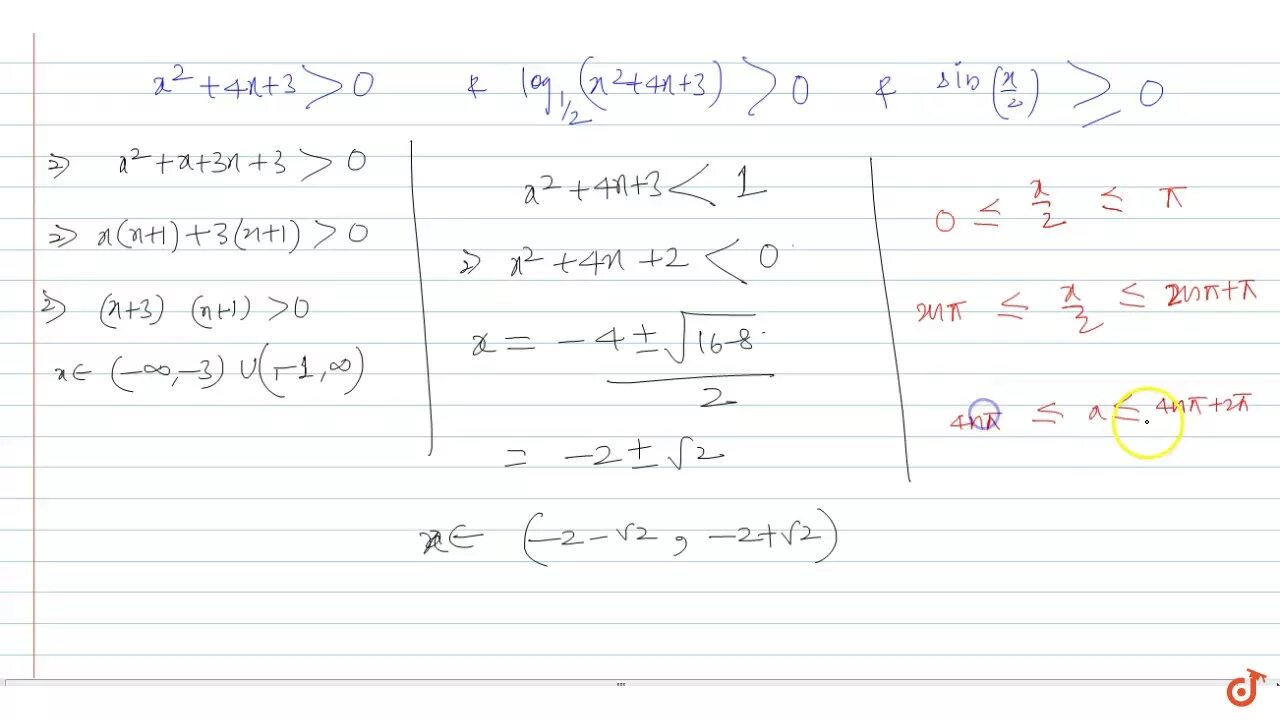 x² + 4x + 3 > 0 & log_{1/2}(x² + 4x + 3) > 0 & sin(x/2) ≥ 0
⇒ x² + x + 3x + 3 > 0
⇒ x(x+1) + 3(x+1) > 0
⇒ (x+3) (x+1) > 0
x ∈ (-∞, -3) ∪ (-1, ∞)
x² + 4x + 3 < 1
⇒ x² + 4x + 2 < 0
x = (-4 ± √(16-8))/2
= -2 ± √2
x ∈ (-2-√2, -2+√2)
0 ≤ x/2 ≤ π
2nπ ≤ x/2 ≤ 2nπ + π
4nπ ≤ x ≤ 4nπ + 2π